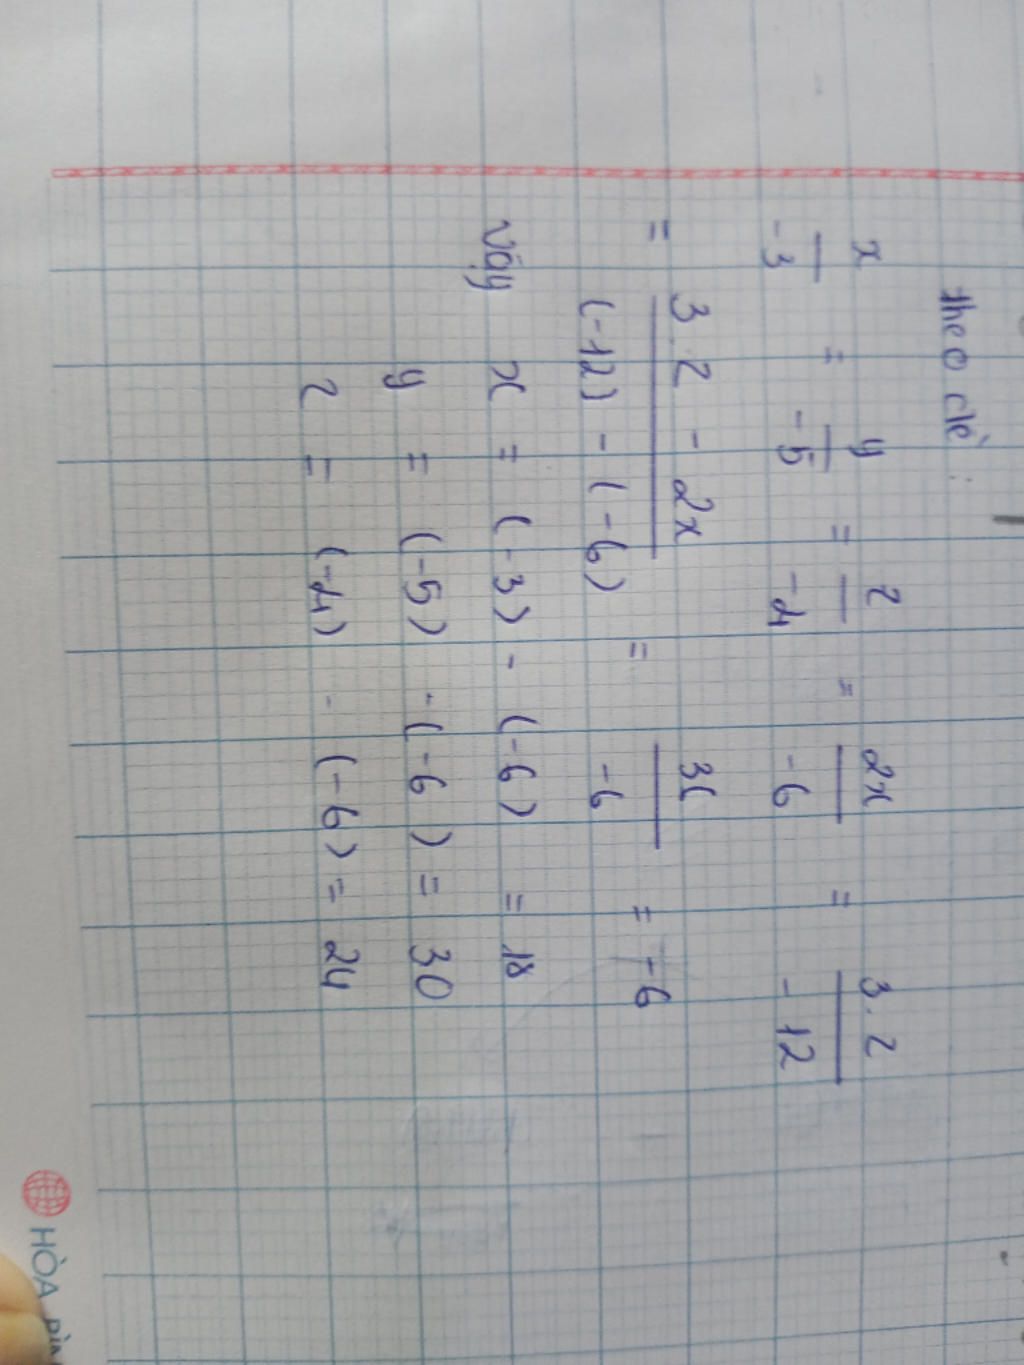 theo đề :
x/-3 = y/-5 = z/-4 = 2x/-6 = 3.z/-12
= 3.z - 2x/(-12) - (-6) = 36/-6 = -6
Vậy x = (-3) - (-6) = 18
y = (-5) - (-6) = 30
z = (-4) - (-6) = 24
HÒA